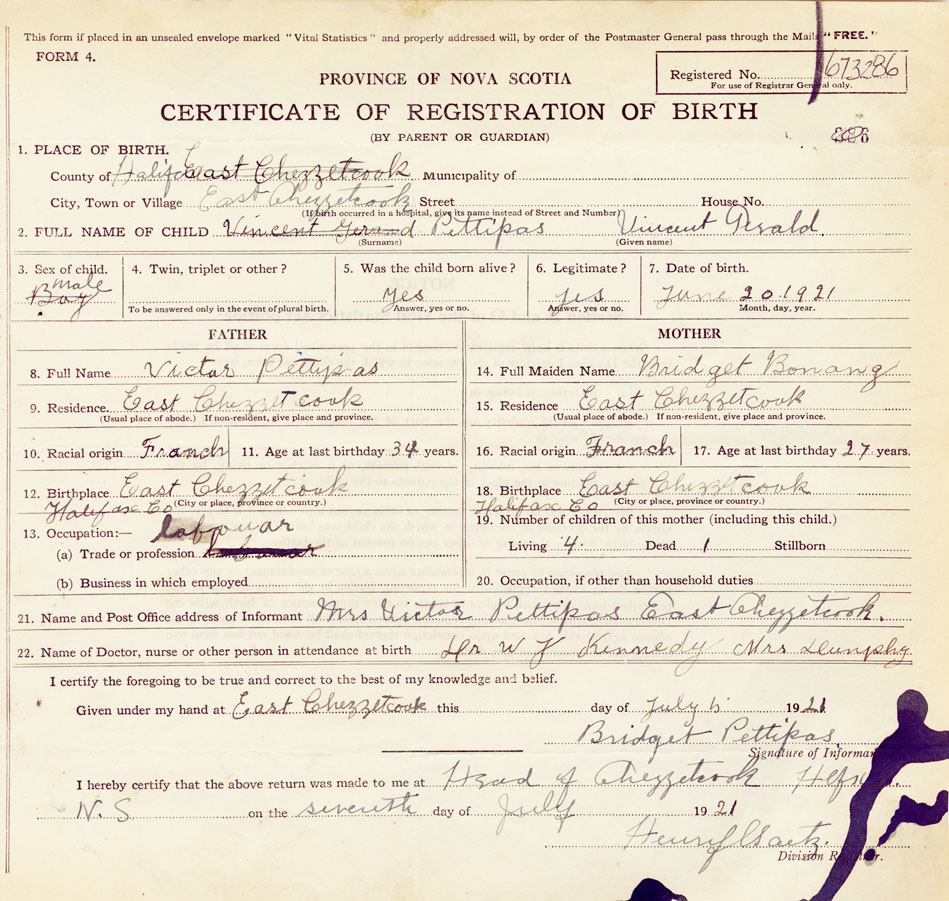 This form if placed in an unsealed envelope marked "Vital Statistics" and properly addressed will, by order of the Postmaster General pass through the Mails "FREE."
FORM 4.
Registered No. 673286
For use of Registrar General only.
PROVINCE OF NOVA SCOTIA
CERTIFICATE OF REGISTRATION OF BIRTH
(BY PARENT OR GUARDIAN)
1. PLACE OF BIRTH.
County of Halifax East Chezzetcook Municipality of
City, Town or Village East Chezzetcook Street House No.
(If birth occurred in a hospital, give its name instead of Street and Number)
2. FULL NAME OF CHILD Vincent Gerard Pettipas Vincent Gerald.
(Surname) (Given name)
3. Sex of child. 4. Twin, triplet or other? 5. Was the child born alive? 6. Legitimate? 7. Date of birth.
male
Boy yes yes June 20.1921
To be answered only in the event of plural birth. Answer, yes or no. Answer, yes or no. Month, day, year.
FATHER
8. Full Name Victor Pettipas
9. Residence. East Chezzetcook
(Usual place of abode.) If non-resident, give place and province.
10. Racial origin Franch 11. Age at last birthday 34 years.
12. Birthplace East Chezzetcook
Halifax Co (City or place, province or country.)
13. Occupation:— labouar
(a) Trade or profession
(b) Business in which employed
MOTHER
14. Full Maiden Name Bridget Bonang
15. Residence East Chezzetcook
(Usual place of abode.) If non-resident, give place and province.
16. Racial origin Franch 17. Age at last birthday 27 years.
18. Birthplace East Chezzetcook
Halifax Co (City or place, province or country.)
19. Number of children of this mother (including this child.)
Living 4. Dead 1 Stillborn
20. Occupation, if other than household duties
21. Name and Post Office address of Informant Mrs Victor Pettipas East Chezzetcook.
22. Name of Doctor, nurse or other person in attendance at birth Dr W J Kennedy Mrs Dunphy
I certify the foregoing to be true and correct to the best of my knowledge and belief.
Given under my hand at East Chezzetcook this day of July 1921
Bridget Pettipas.
Signature of Informant
I hereby certify that the above return was made to me at Head of Chezzetcook
N.S on the seventh day of July 1921
Division Registrar.